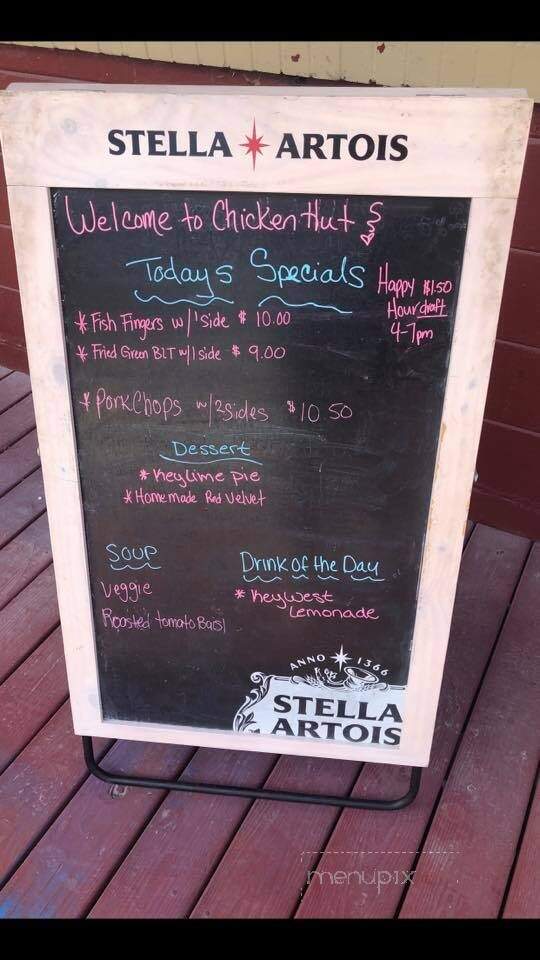 STELLA ARTOIS
Welcome to Chicken Hut
Todays Specials
Happy $1.50
Hour draft
4-7pm
* Fish Fingers w/1 side $ 10.00
* Fried Green BLT w/1 side $ 9.00
* Pork Chops w/2sides $10.50
Dessert
* Key lime pie
* Homemade Red Velvet
Soup
Veggie
Roasted tomato Baisl
Drink of the Day
* Key West
Lemonade
ANNO 1366
STELLA
ARTOIS
menupix